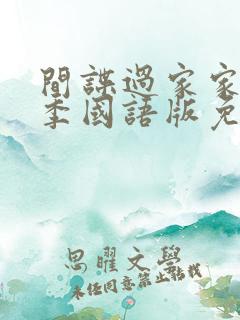 間諜過家家
季國語版免
思曜文學
未任同意禁止轉載